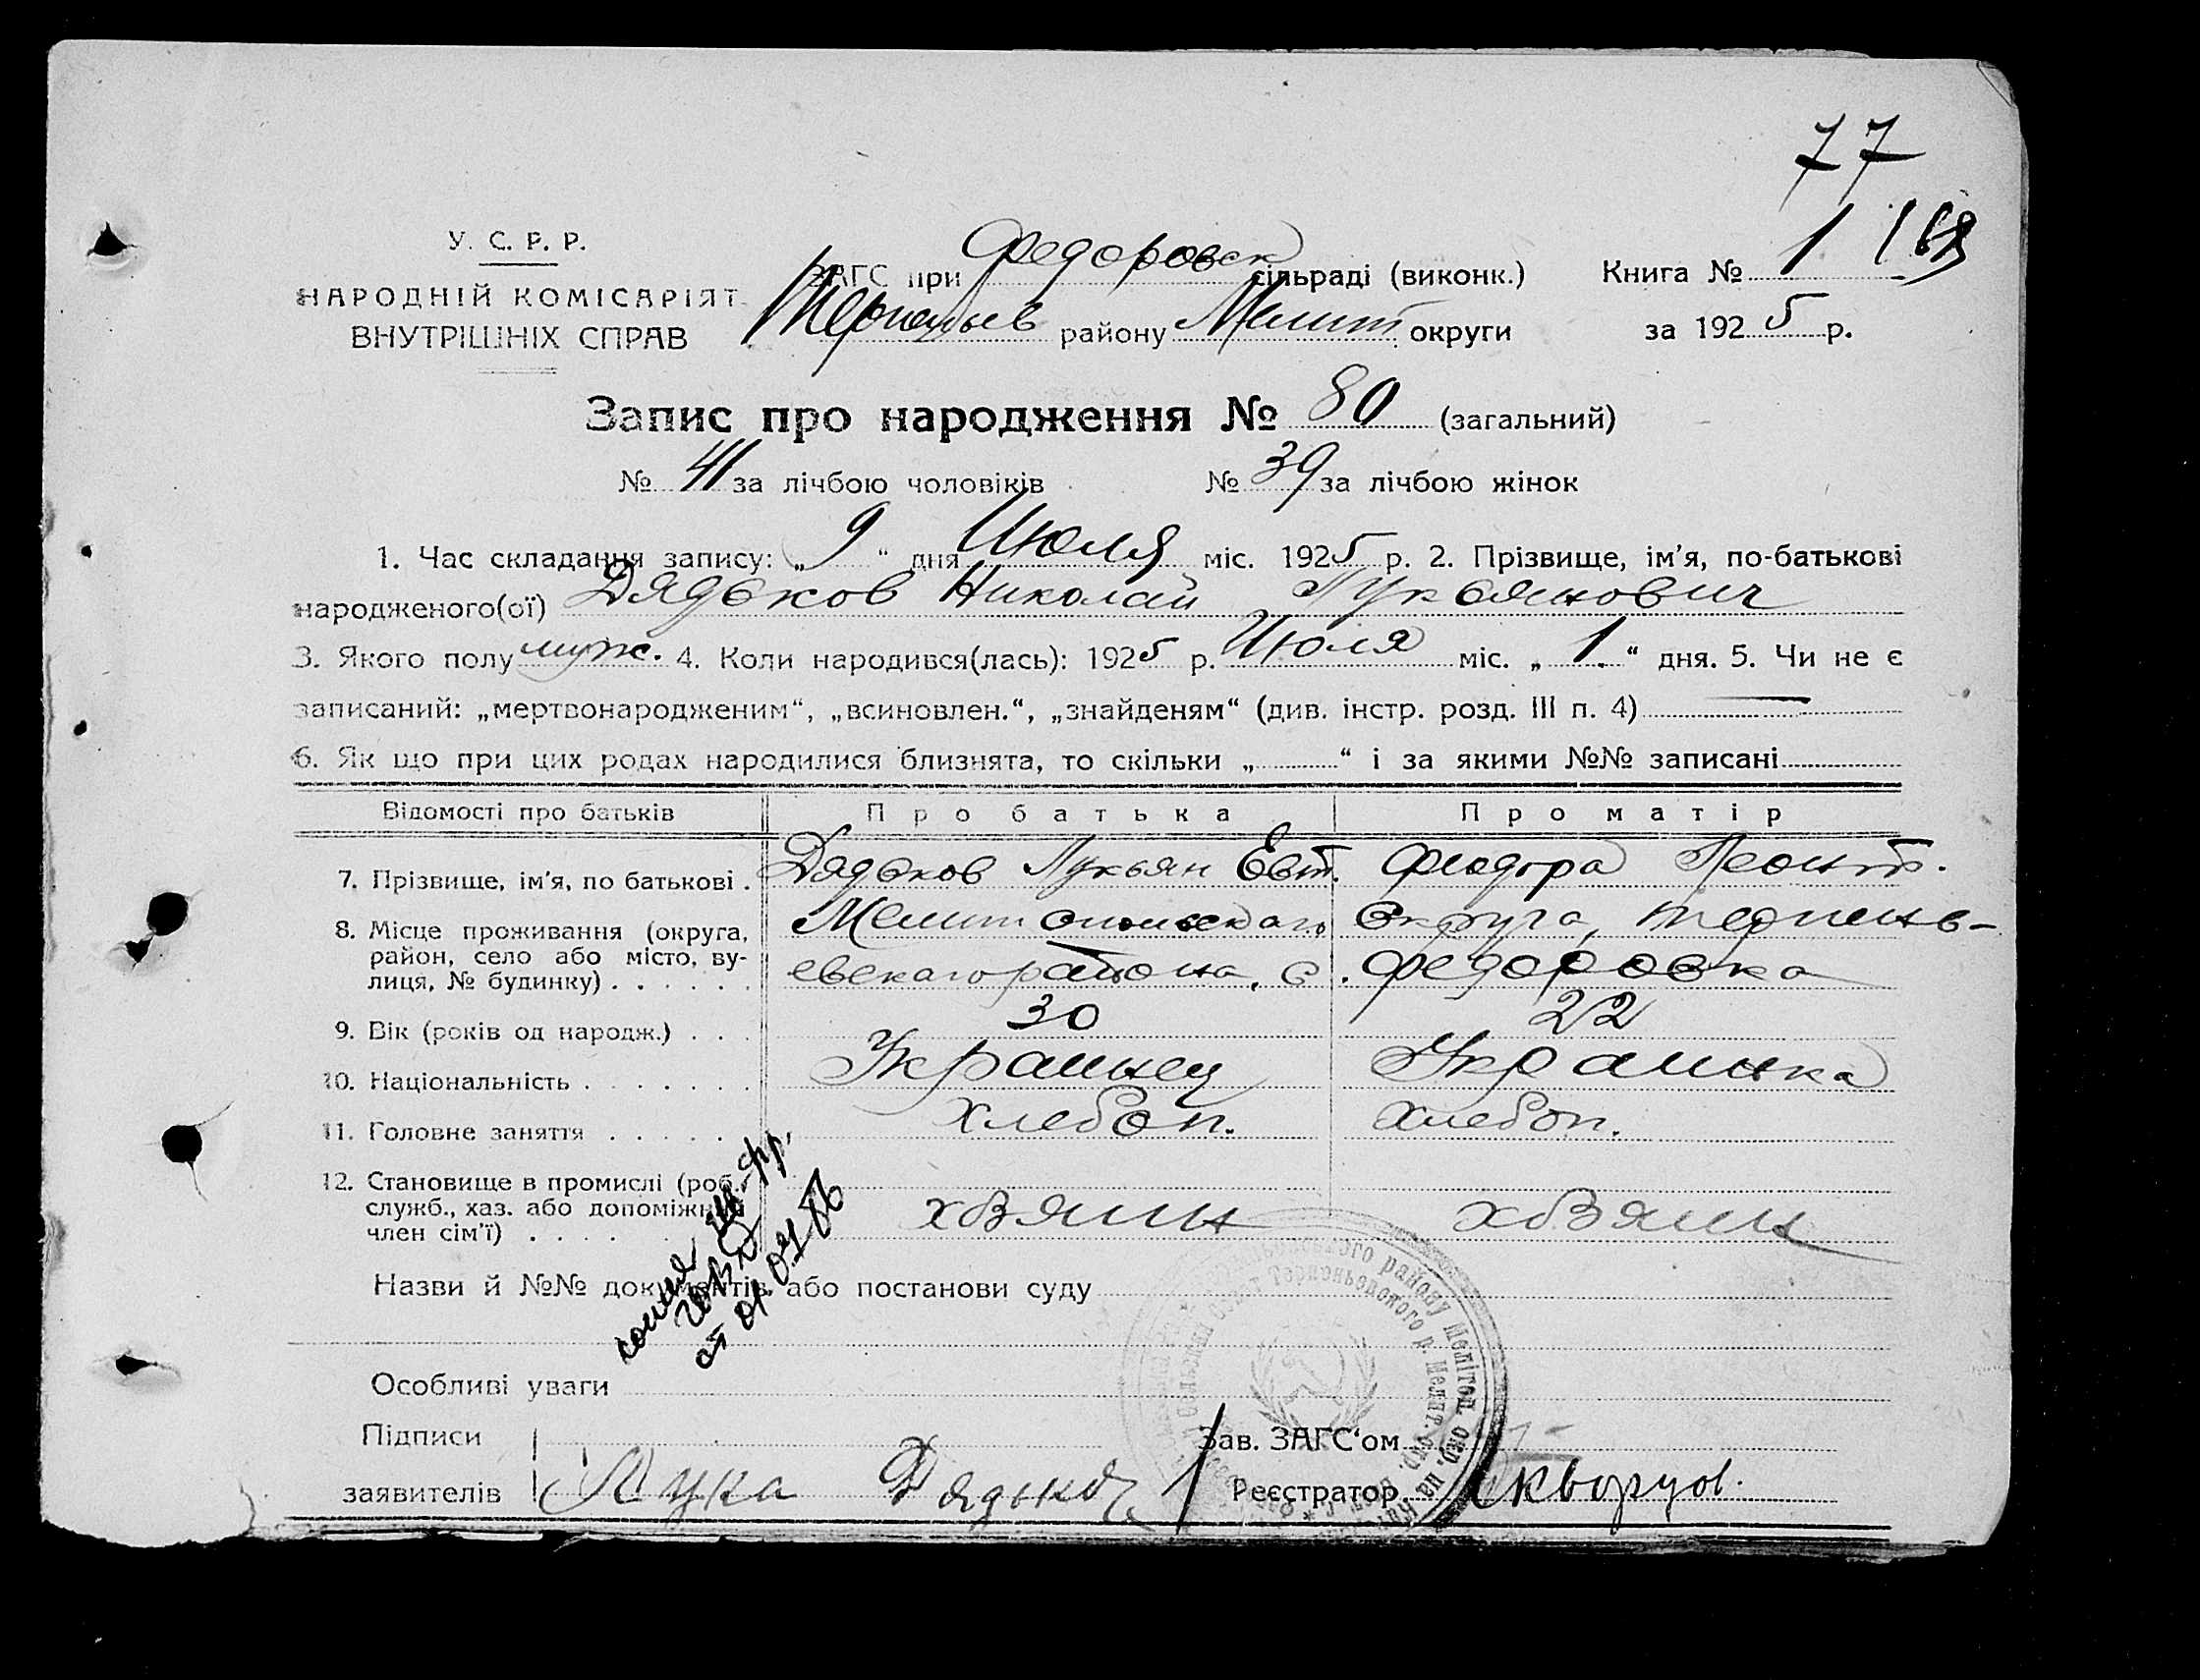 77
У. С. Р. Р.
НАРОДНІЙ КОМІСАРІЯТ
ВНУТРІШНІХ СПРАВ
ЗАГС при Федоровск сільраді (виконк.) Книга № 1
району Мелит округи за 1925 р.
Запис про народження № 80 (загальний)
№ 41 за лічбою чоловіків № 39 за лічбою жінок
1. Час складання запису: „9“ дня Июля міс. 1925 р. 2. Прізвище, ім'я, по-батькові
народженого(ої) Дядьков Николай Лукьянович
3. Якого полу муж. 4. Коли народився(лась): 1925 р. Июля міс. „1.“ дня. 5. Чи не є
записаний: „мертвонародженим“, „всиновлен.“, „знайденям“ (див. інстр. розд. III п. 4) —
6. Як що при цих родах народилися близнята, то скільки „ “ і за якими №№ записані
Відомості про батьків Про батька Про матір
7. Прізвище, ім'я, по батькові . Дядьков Лукьян Евт. Феодора Леонт.
8. Місце проживання (округа, район, село або місто, вулиця, № будинку) . . . . . . Мелитопольскаго Округа, Терпень-
евскаго района, с. Федоровка
9. Вік (років од народж.) . . . 30 22
10. Національність . . . . . . . Украинец Украинка
11. Головне заняття . . . . . хлебоп. хлебоп.
12. Становище в промислі (роб., служб., хаз. або допоміжний член сім'ї) . . . . хозяин хозяин
Назви й №№ документів або постанови суду
от 01 07 86
Особливі уваги
Підписи Зав. ЗАГС'ом
заявителів Лука Дядьков Реєстратор Скворцов.